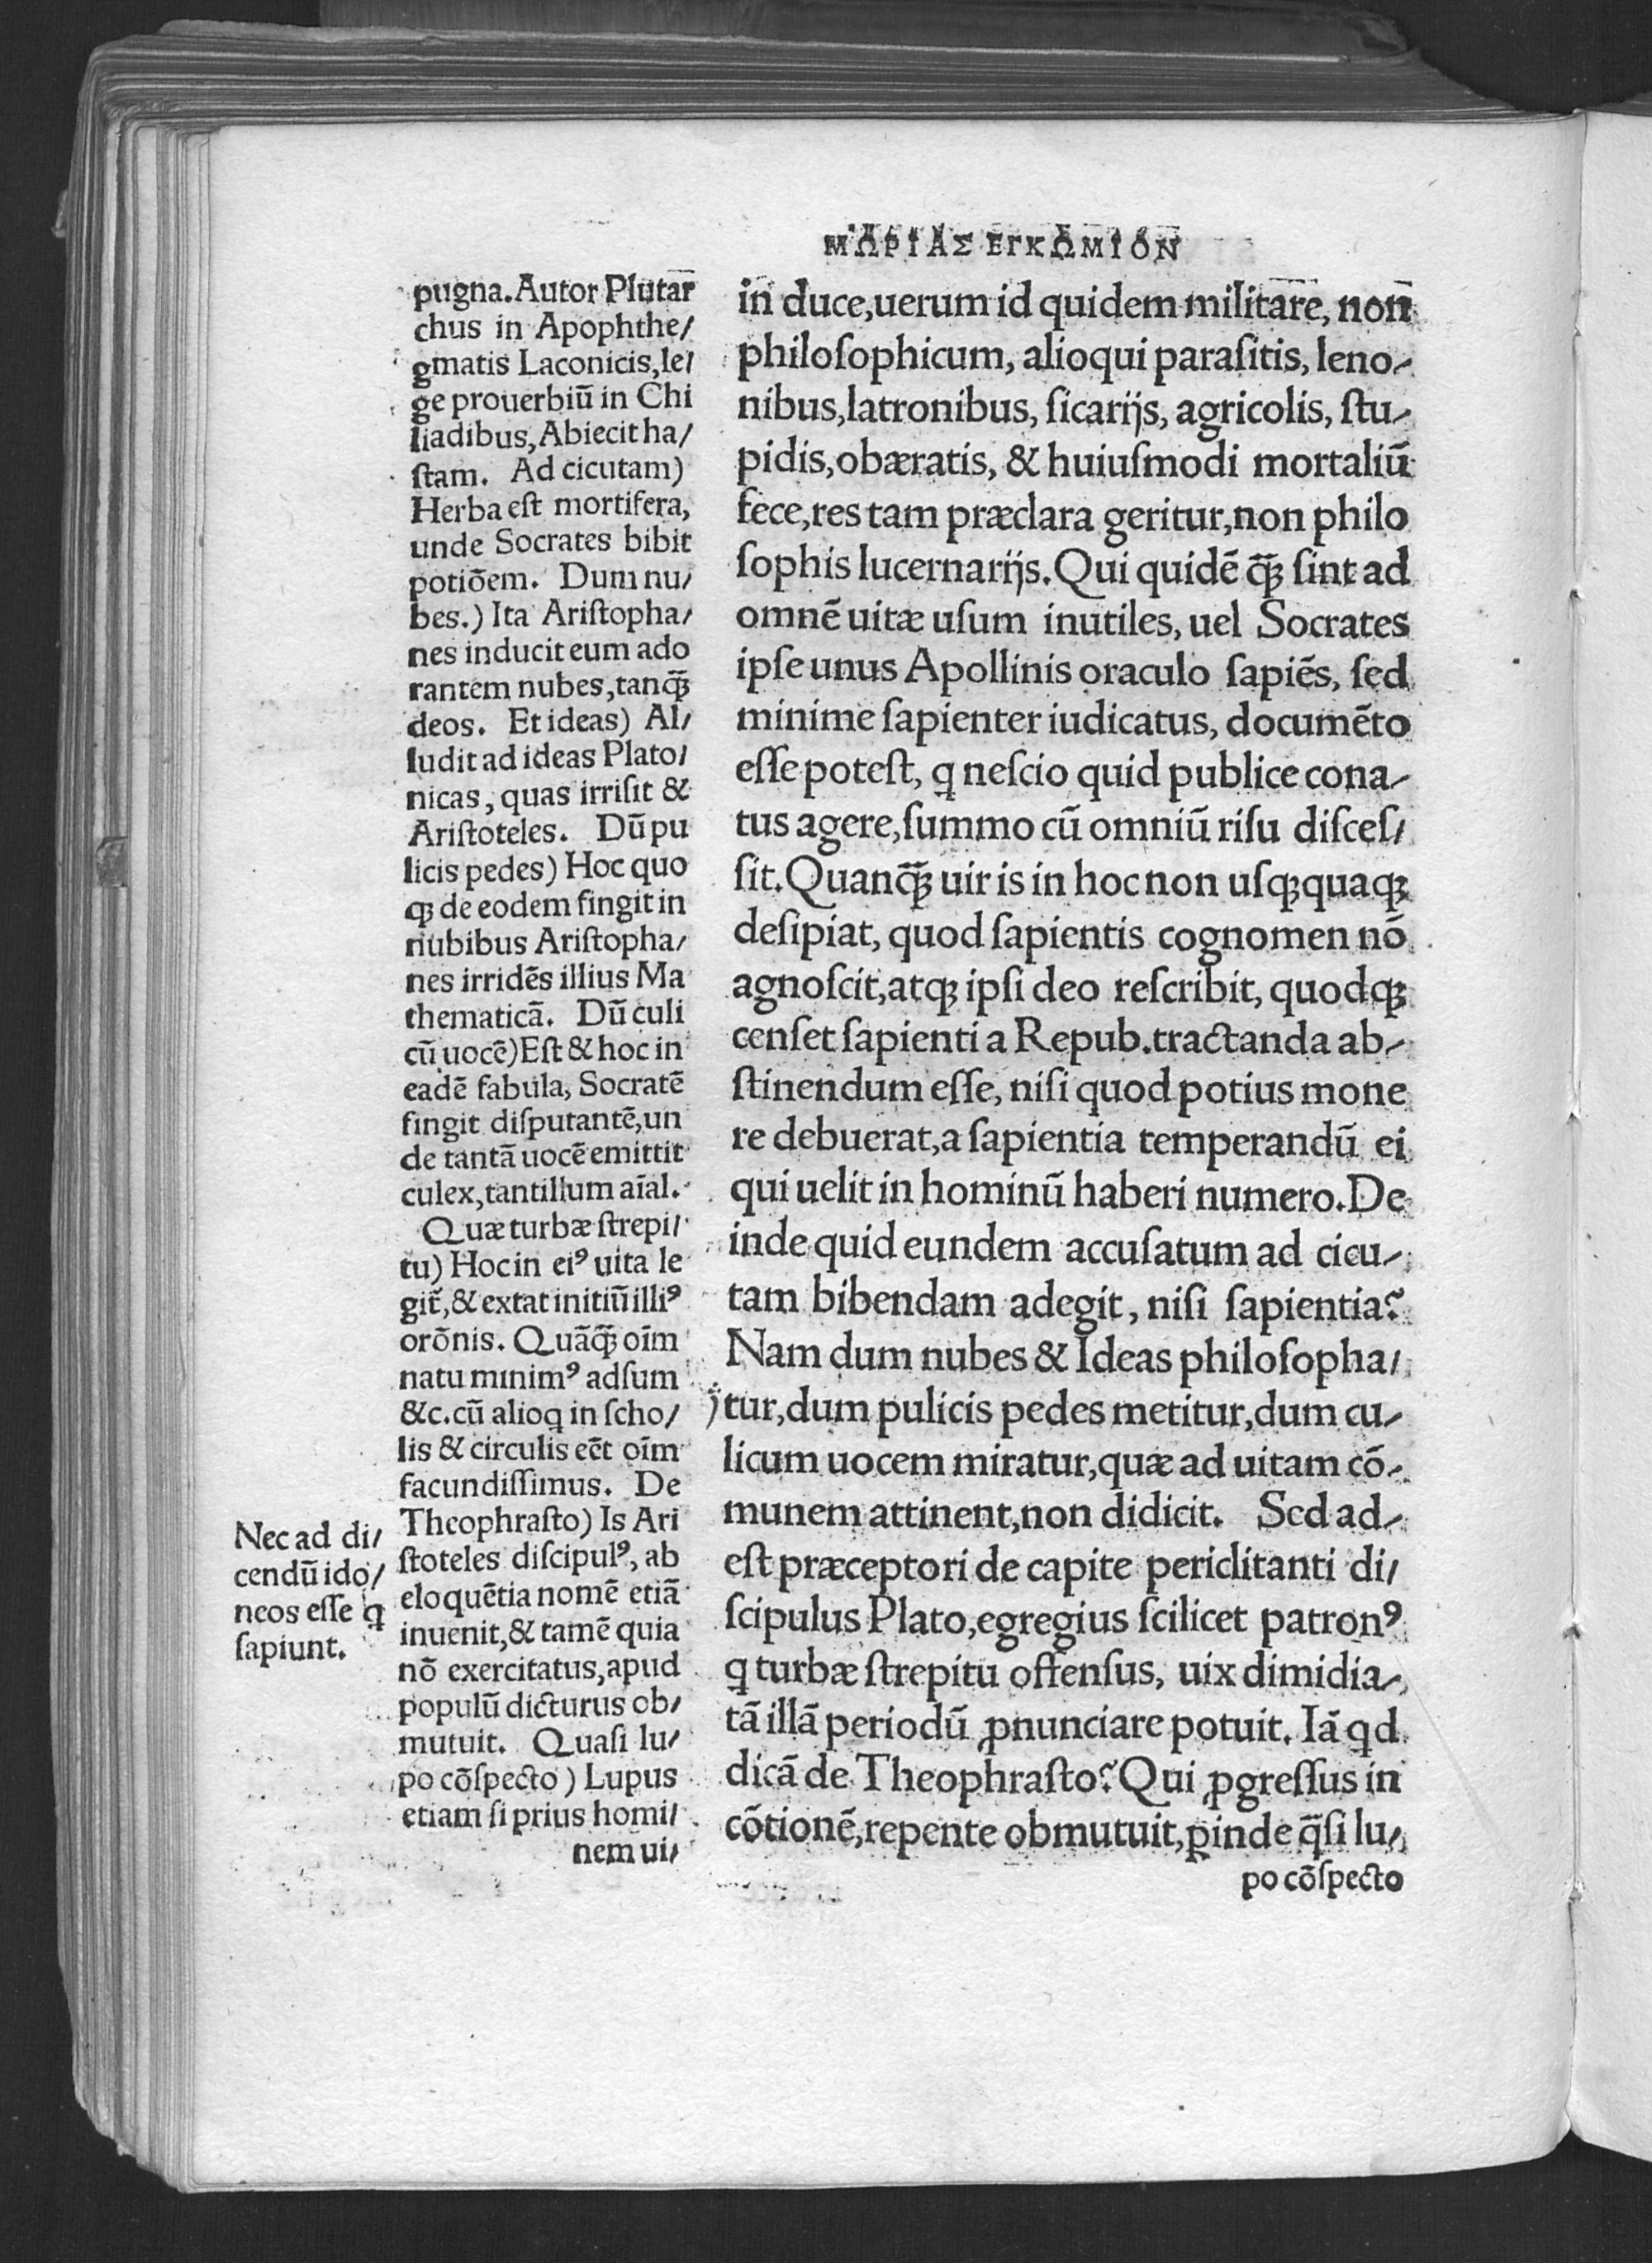 ΜΩΡΙΑΣ ΕΓΚΩΜΙΟΝ
pugna. Autor Plutar
chus in Apophthe/
gmatis Laconicis, le/
ge prouerbiū in Chi
liadibus, Abiecit ha/
ſtam. Ad cicutam)
Herba eſt mortifera,
unde Socrates bibit
potiōem. Dum nu/
bes.) Ita Ariſtopha/
nes inducit eum ado
rantem nubes, tanꝙ̄
deos. Et ideas) Al/
ludit ad ideas Plato/
nicas, quas irriſit &
Ariſtoteles. Dū pu
licis pedes) Hoc quo
ꝙ de eodem fingit in
nubibus Ariſtopha/
nes irridēs illius Ma
thematicā. Dū culi
cū uocē) Eſt & hoc in
eadē fabula, Socratē
fingit diſputantē, un
de tantā uocē emittit
culex, tantillum aīal.
Quæ turbæ ſtrepi/
tu) Hoc in eiꝰ uita le
git̄, & extat initiū illiꝰ
orōnis. Quāꝙ̄ oīm
natu minimꝰ adſum
&c. cū alioq in ſcho/
lis & circulis eēt oīm
facundiſſimus. De
Theophraſto) Is Ari
ſtoteles diſcipulꝰ, ab
eloquētia nomē etiā
inuenit, & tamē quia
nō exercitatus, apud
populū dicturus ob/
mutuit. Quaſi lu/
po cōſpecto) Lupus
etiam ſi prius homi/
nem ui/
Nec ad di/
cendū ido/
neos eſſe ꝗ
ſapiunt.
in duce, uerum id quidem militare, non
philoſophicum, alioqui paraſitis, leno/
nibus, latronibus, ſicarijs, agricolis, ſtu/
pidis, obæratis, & huiuſmodi mortaliū
fece, res tam præclara geritur, non philo
ſophis lucernarijs. Qui quidē ꝙ̄ ſint ad
omnē uitæ uſum inutiles, uel Socrates
ipſe unus Apollinis oraculo ſapiēs, ſed
minime ſapienter iudicatus, documēto
eſſe poteſt, ꝗ neſcio quid publice cona/
tus agere, ſummo cū omniū riſu diſceſ/
ſit. Quanꝙ̄ uir is in hoc non uſꝙquaꝙ
deſipiat, quod ſapientis cognomen nō
agnoſcit, atꝙ ipſi deo reſcribit, quodꝙ
cenſet ſapienti a Repub. tractanda ab/
ſtinendum eſſe, niſi quod potius mone
re debuerat, a ſapientia temperandū ei
qui uelit in hominū haberi numero. De
inde quid eundem accuſatum ad cicu/
tam bibendam adegit, niſi ſapientia?
Nam dum nubes & Ideas philoſopha/
tur, dum pulicis pedes metitur, dum cu/
licum uocem miratur, quæ ad uitam cō/
munem attinent, non didicit. Sed ad/
eſt præceptori de capite periclitanti di/
ſcipulus Plato, egregius ſcilicet patronꝰ
ꝗ turbæ ſtrepitu offenſus, uix dimidia/
tā illā periodū ꝓnunciare potuit. Iā ꝗd
dicā de Theophraſto? Qui ꝓgreſſus in
cōtionē, repente obmutuit, ꝑinde q̄ſi lu/
po cōſpecto